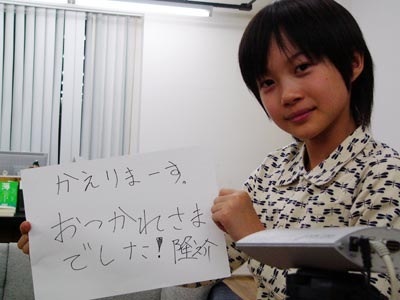 かえりまーす。
おつかれさま
でした! 隆之介